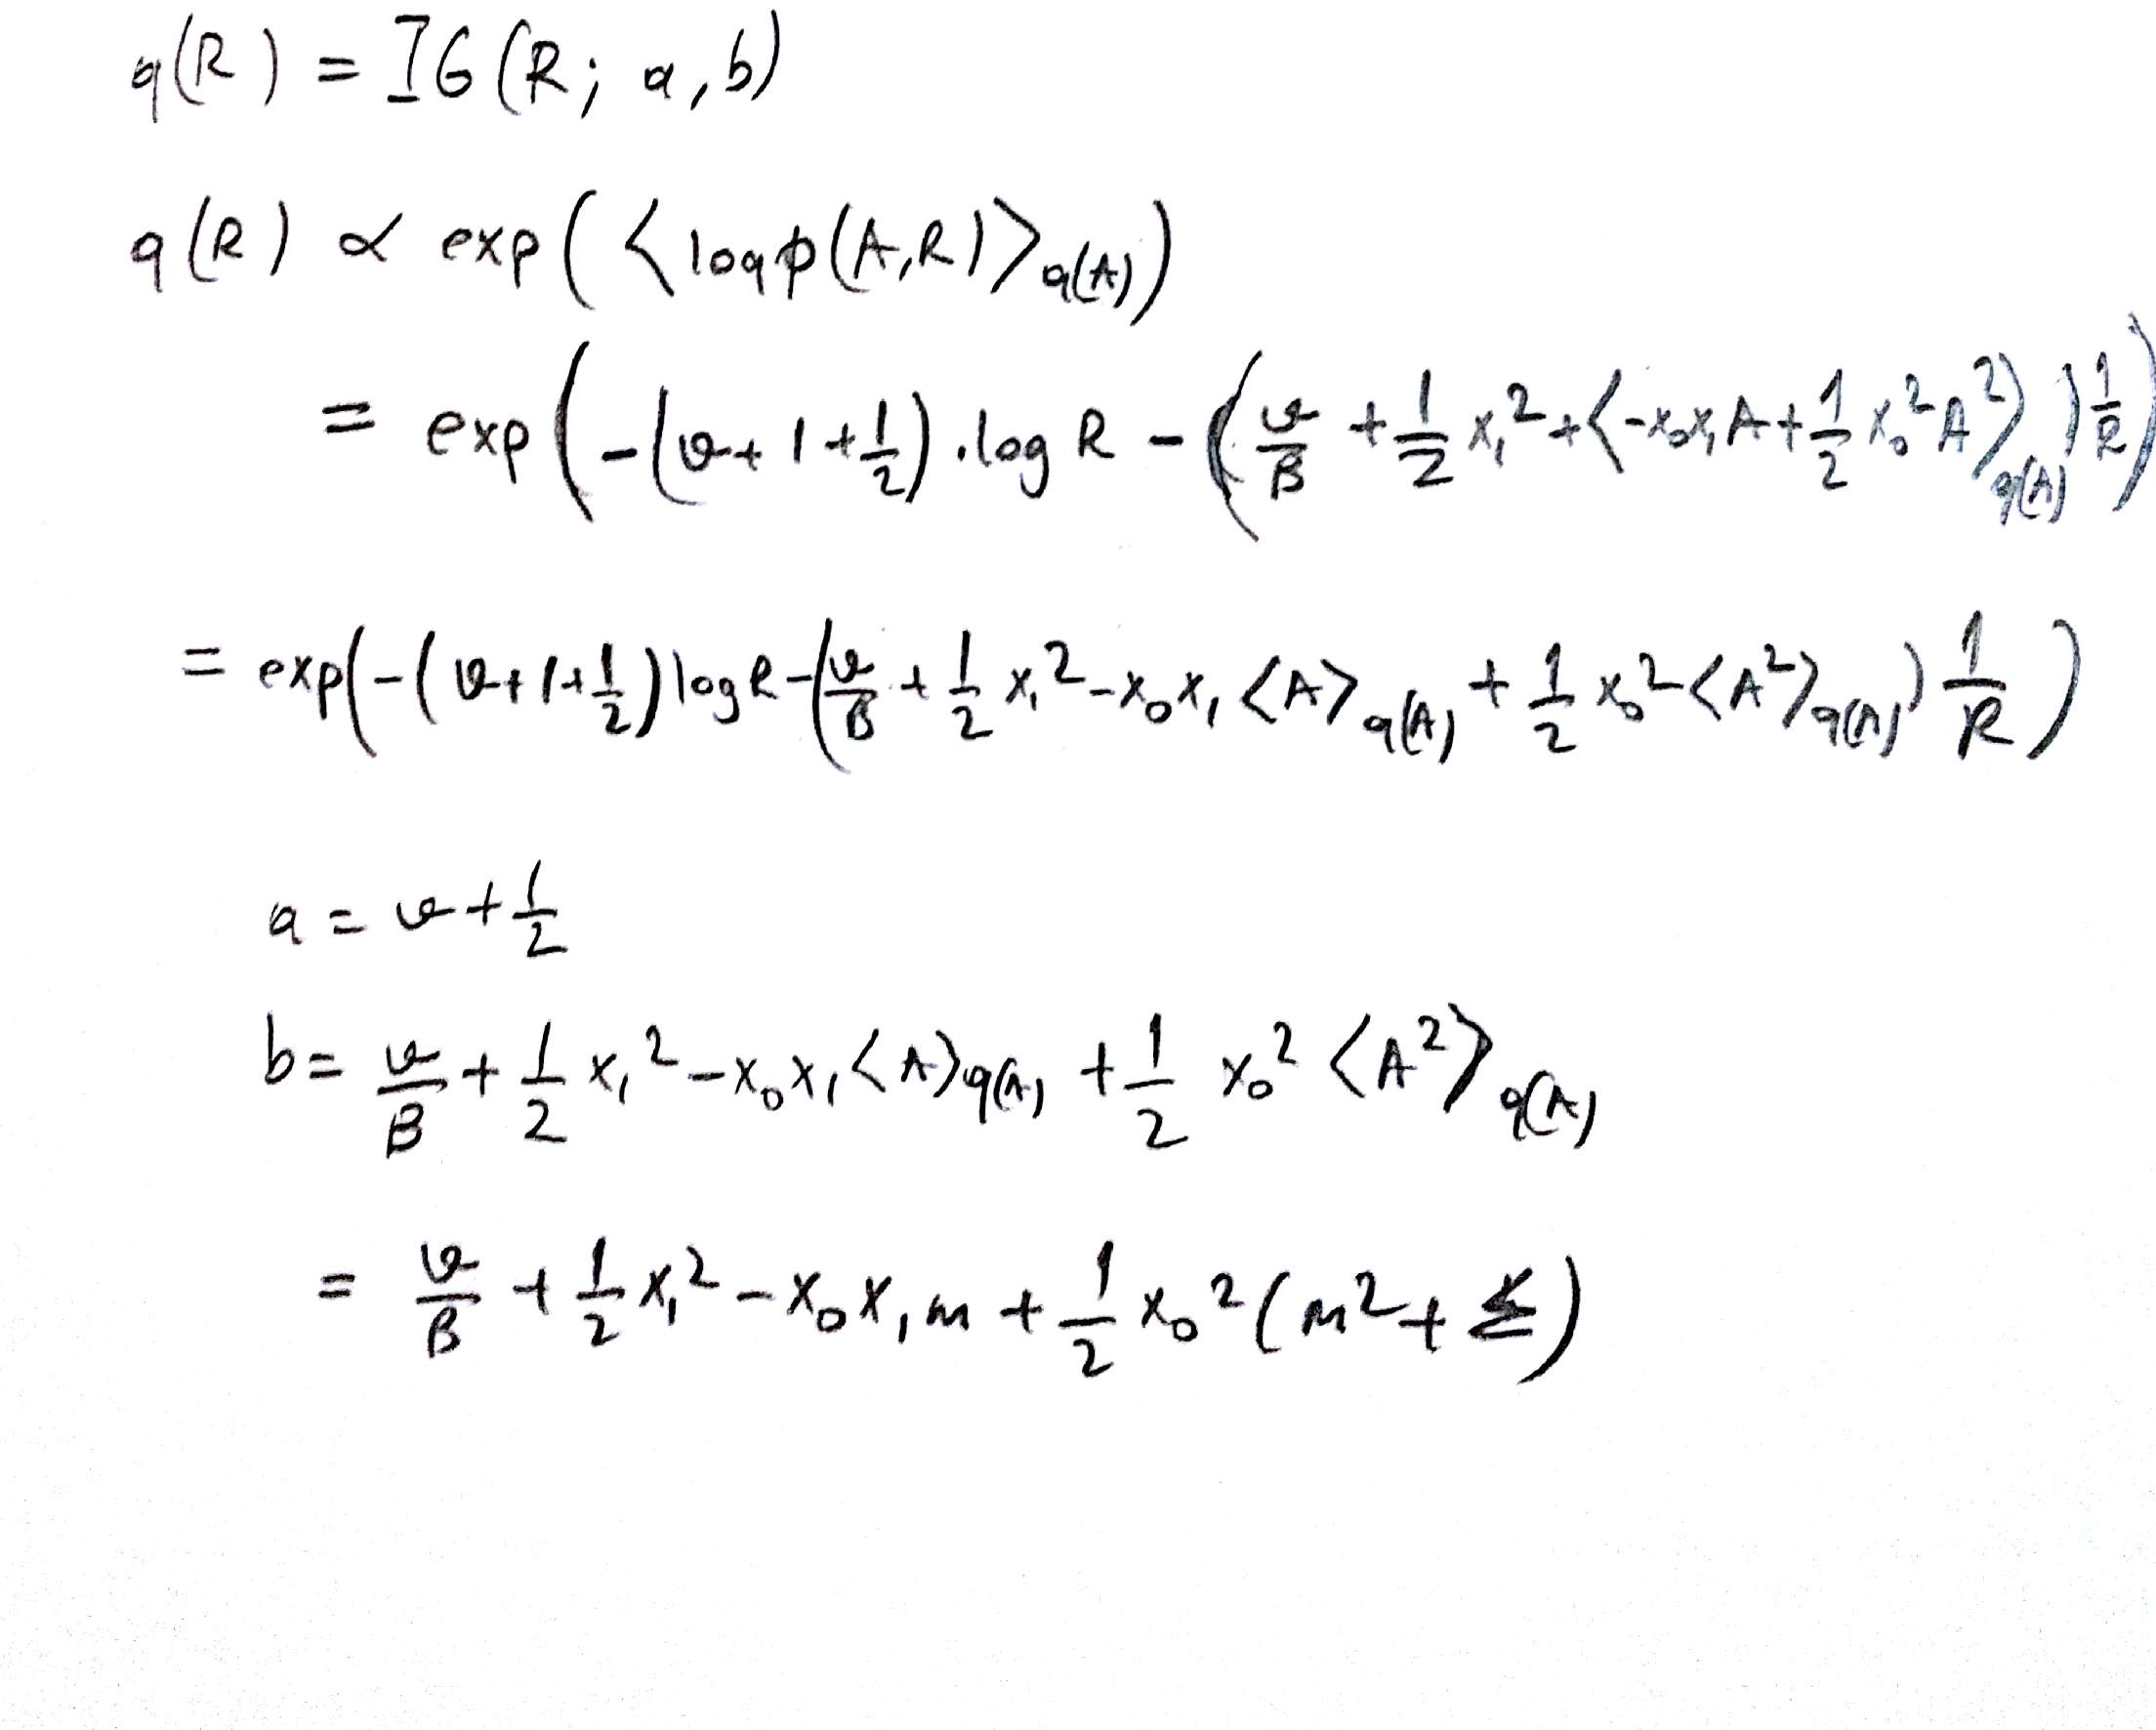 q(R) = IG(R; a, b)
q(R) ∝ exp(⟨log p(A,R)⟩_{q(A)})
= exp(-(v + 1 + 1/2) . log R - (v/B + 1/2 x₁² + ⟨-x₀x₁A + 1/2 x₀²A²⟩_{q(A)}) 1/R)
= exp(-(v + 1 + 1/2) log R - (v/B + 1/2 x₁² - x₀x₁⟨A⟩_{q(A)} + 1/2 x₀²⟨A²⟩_{q(A)}) 1/R)
a = v + 1/2
b = v/B + 1/2 x₁² - x₀x₁⟨A⟩_{q(A)} + 1/2 x₀² ⟨A²⟩_{q(A)}
= v/B + 1/2 x₁² - x₀x₁m + 1/2 x₀²(m² + Σ)